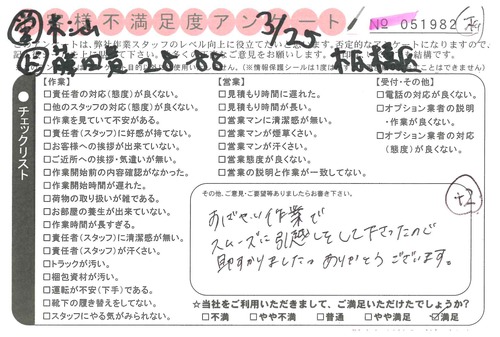 様不満足度アンケート
3/25
№ 051982
ンケートは、弊社作業スタッフのレベル向上に役立てたい
否定的なアンケートになりますので、
(※情報保護シールは1度は
ことはできません)
28-88
板橋区
チェックリスト
【作業】
□責任者の対応(態度)が良くない。
□他のスタッフの対応(態度)が良くない。
□作業を見ていて不安がある。
□責任者(スタッフ)に好感が持てない。
□お客様への挨拶が出来ていない。
□ご近所への挨拶・気遣いが無い。
□作業開始前の内容確認がなかった。
□作業開始時間が遅れた。
□荷物の取り扱いが雑である。
□お部屋の養生が出来ていない。
□作業時間が長すぎる。
□責任者(スタッフ)に清潔感が無い。
□責任者(スタッフ)が汗くさい。
□トラックが汚い。
□梱包資材が汚い。
□運転が不安(下手)である。
□靴下の履き替えをしてない。
□スタッフにやる気がみられない。
【営業】
□見積もり時間に遅れた。
□見積もり時間が長い。
□営業マンに清潔感が無い。
□営業マンが煙草くさい。
□営業マンが汗くさい。
□営業態度が良くない。
□営業の説明と作業が一致してない。
【受付・その他】
□電話の対応が良くない。
□オプション業者の説明
・作業が良くない。
□オプション業者の対応
(態度)が良くない。
その他、ご意見・ご要望等ありましたらお書き下さい。
+2
すばやい作業で
スムーズに引越しをして下さったので
助かりました。ありがとうございます。
☆当社をご利用いただきまして、ご満足いただけてでしょうか?
□不満 □やや不満 □普通 □やや満足 ☑満足